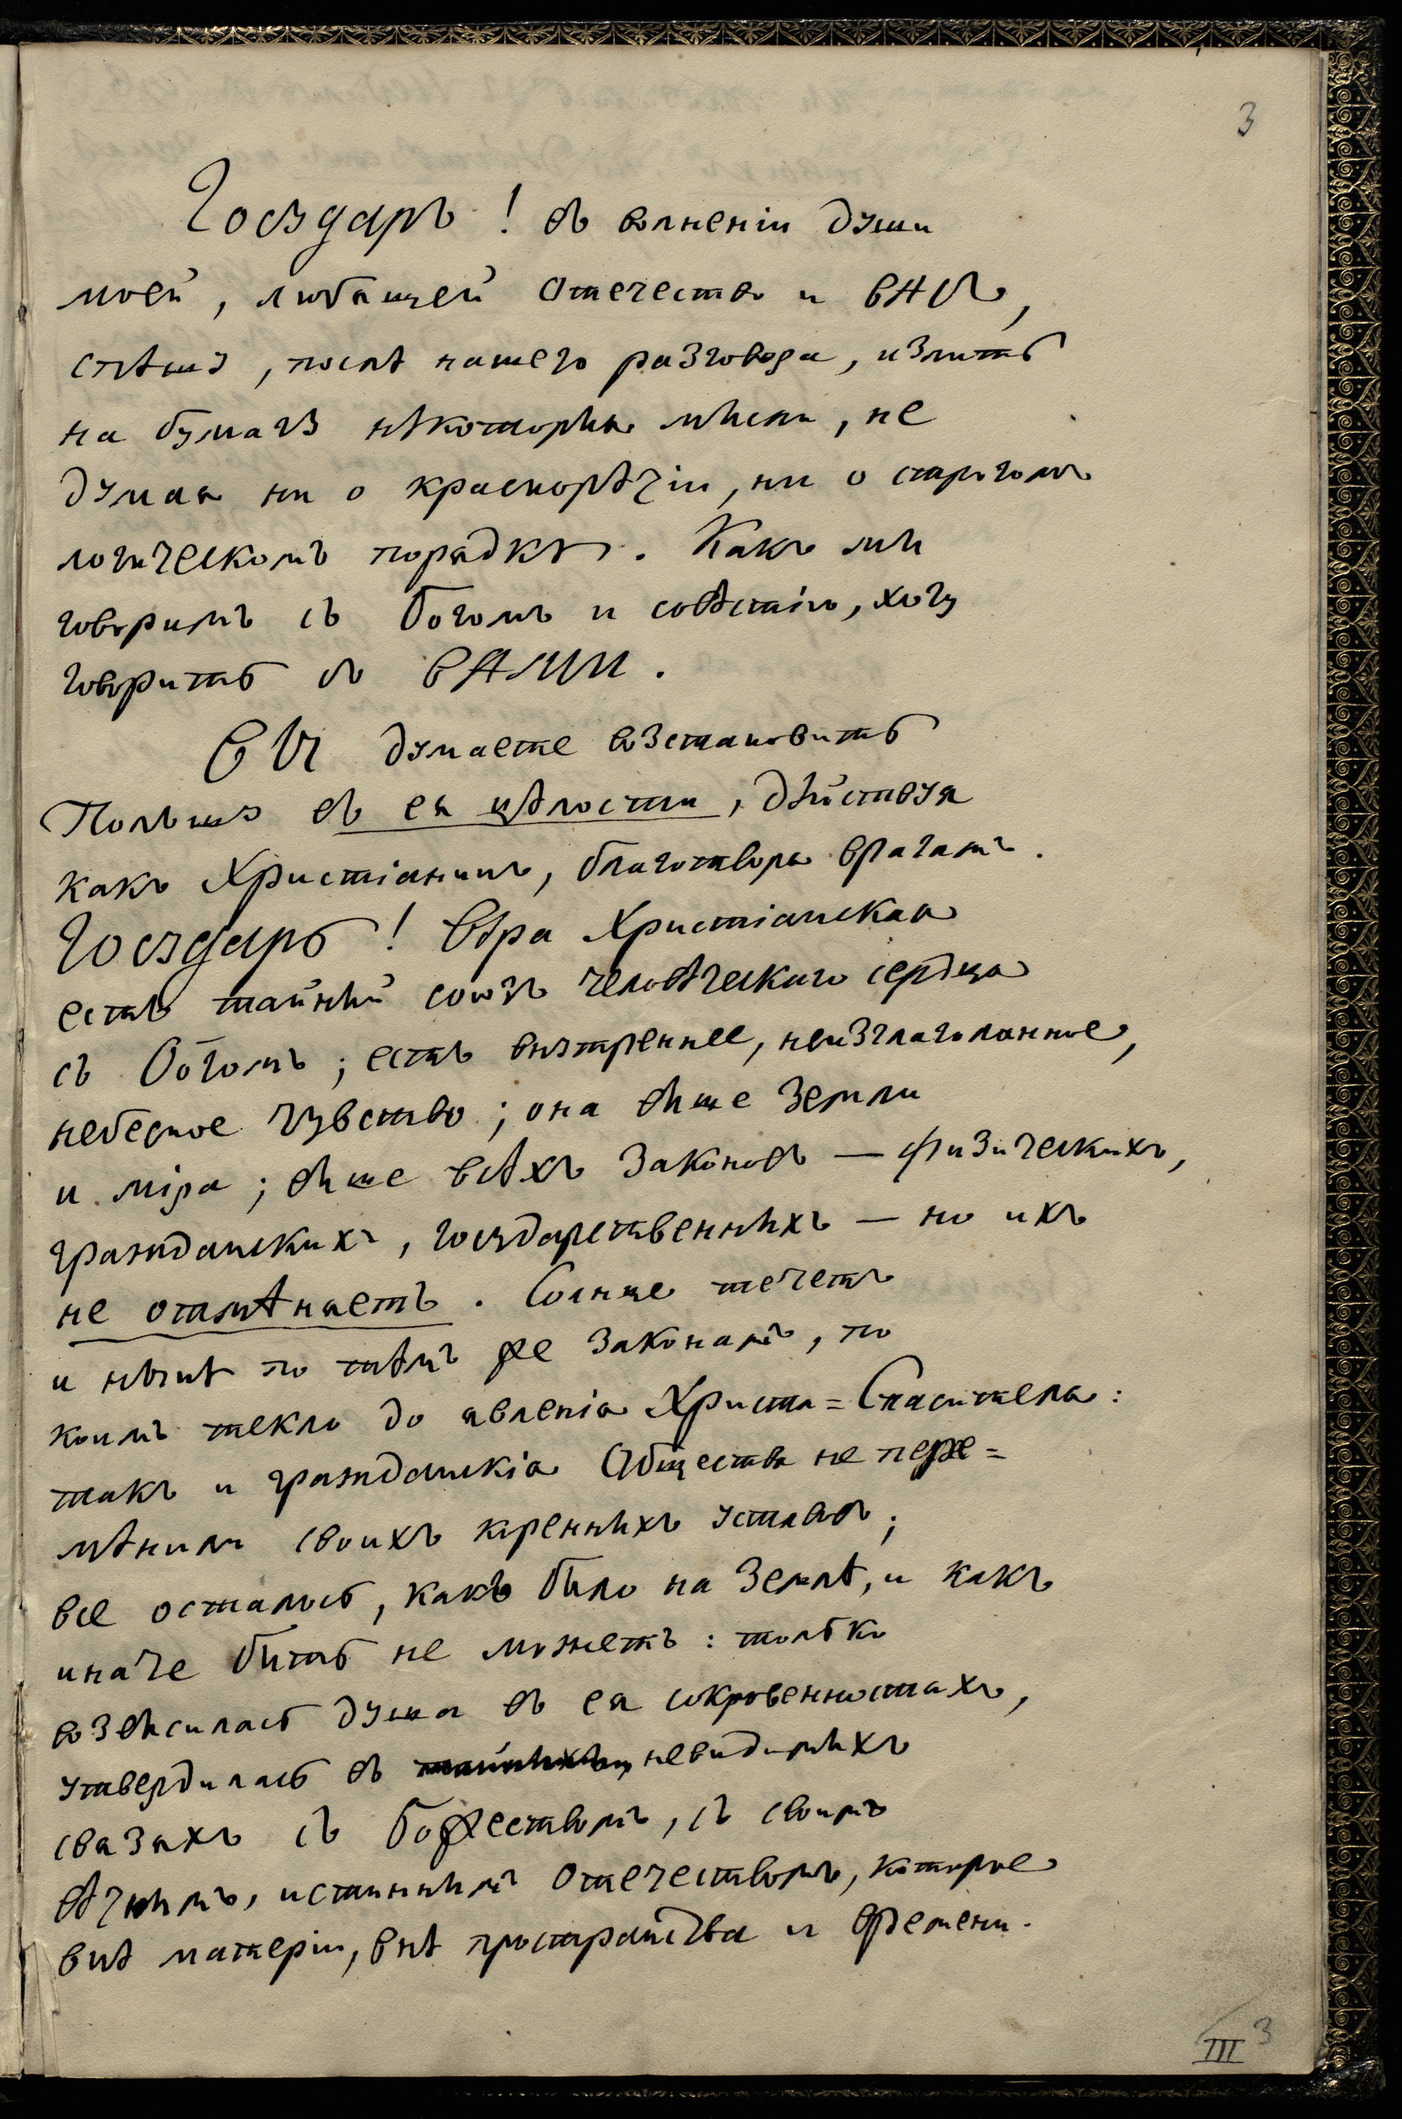 3
Государь! въ волненіи души
моей, любящей Отечество и ВАСЪ,
спѣшу, послѣ нашего разговора, излить
на бумагу нѣкоторыя мысли, не
думая ни о краснорѣчіи, ни о строгомъ
логическомъ порядкѣ. Какъ мы
говоримъ съ Богомъ и совѣстію, хочу
говорить съ ВАМИ.
ВЫ думаете возстановить
Польшу въ ея цѣлости, дѣйствуя
какъ Христіанинъ, благотворя врагамъ.
Государь! Вѣра Христіанская
есть тайный союзъ человѣческаго сердца
съ Богомъ; есть внутреннее, неизглаголанное,
небесное чувство; она выше земли
и міра; выше всѣхъ законовъ — физическихъ,
гражданскихъ, государственныхъ — но ихъ
не отмѣняетъ. Солнце течетъ
и нынѣ по тѣмъ же законамъ, по
коимъ текло до явленія Христа=Спасителя:
такъ и гражданскія Общества не пере=
мѣнили своихъ коренныхъ уставовъ;
все осталось, какъ было на Землѣ, и какъ
иначе быть не можетъ: только
возвысилась душа въ ея сокровенностяхъ,
утвердилась въ невидимыхъ
связяхъ съ Божествомъ, съ своимъ
вѣчнымъ, истиннымъ Отечествомъ, которое
внѣ матеріи, внѣ пространства и времени.
III 3